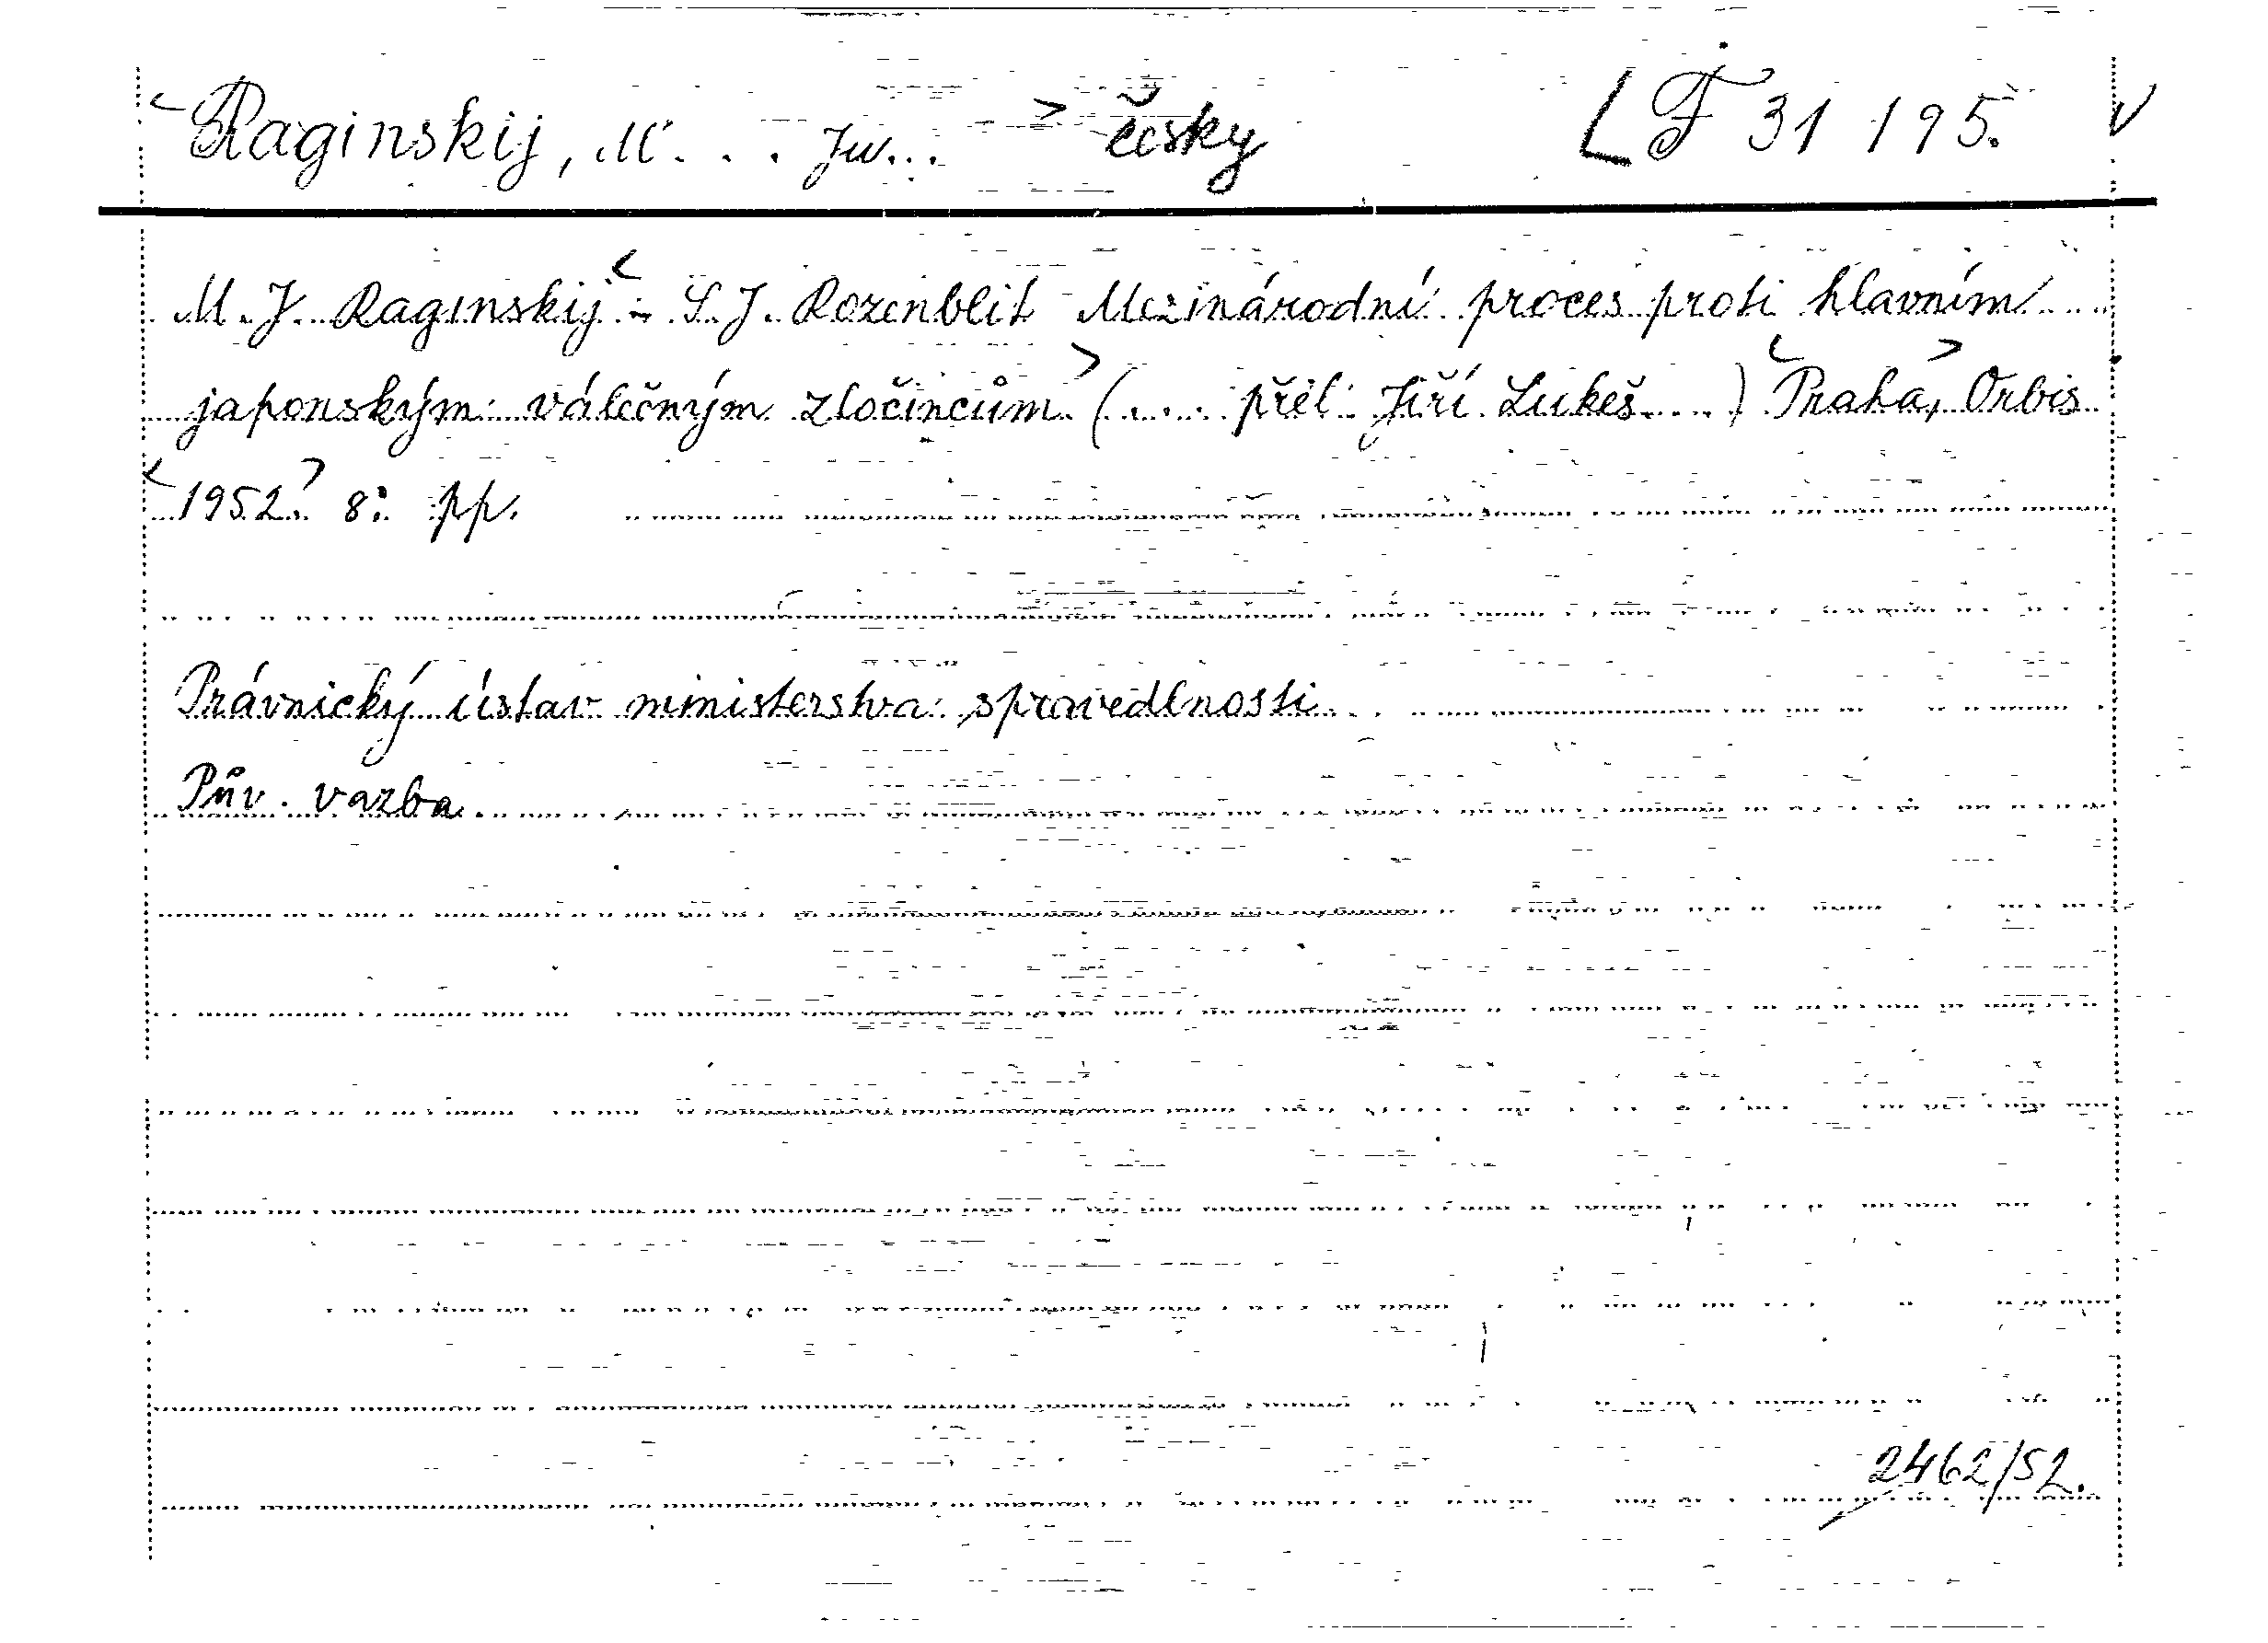 Raginskij, M. . . Jw... česky F 31 195. V
M. J. Raginskij - S. J. Rozenblit Mezinárodní proces proti hlavním
japonským válečným zločincům (... přel. Jiří Lukeš....) Praha, Orbis
1952. 8° pp.
Právnický ústav ministerstva spravedlnosti
Pův. vazba.
2462/52.